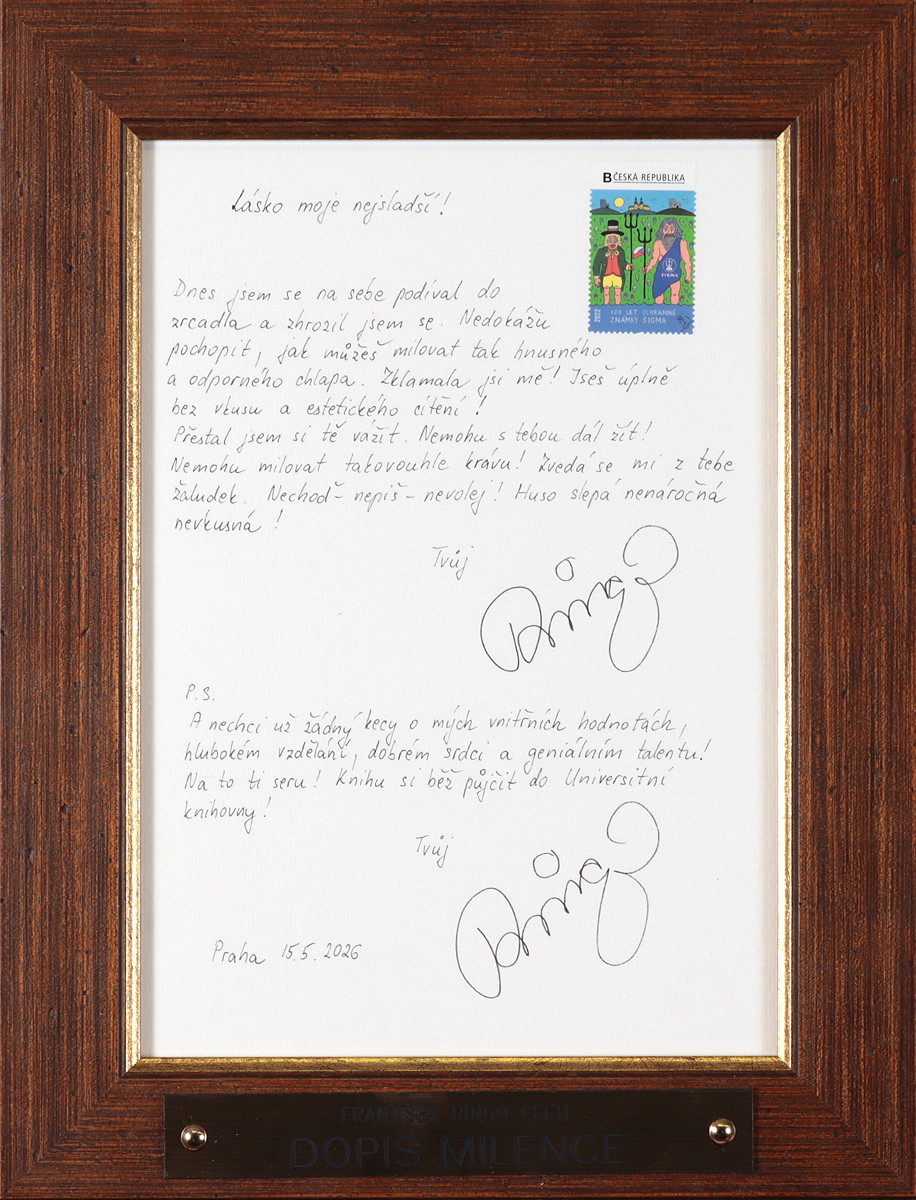 Lásko moje nejsladší!
B ČESKÁ REPUBLIKA
SIGMA
2022
100 LET OCHRANNÉ
ZNÁMKY SIGMA
Dnes jsem se na sebe podíval do
zrcadla a zhrozil jsem se. Nedokážu
pochopit, jak můžeš milovat tak hnusného
a odporného chlapa. Zklamala jsi mě! Jseš úplně
bez vkusu a estetického cítění!
Přestal jsem si tě vážit. Nemohu s tebou dál žít!
Nemohu milovat takovouhle krávu! Zvedá se mi z tebe
žaludek. Nechoď - nepiš - nevolej! Huso slepá nenáročná
nevkusná!
Tvůj
Ringo
P.S.
A nechci už žádný kecy o mých vnitřních hodnotách,
hlubokém vzdělání, dobrém srdci a geniálním talentu!
Na to ti seru! Knihu si běž půjčit do Universitní
knihovny!
Tvůj
Ringo
Praha 15.5. 2026
FRANTIŠEK RINGO ČECH
DOPIS MILENCE